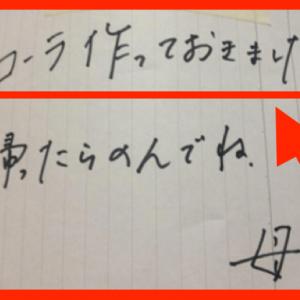 コーラ作っておきまし
帰ったらのんでね、
母